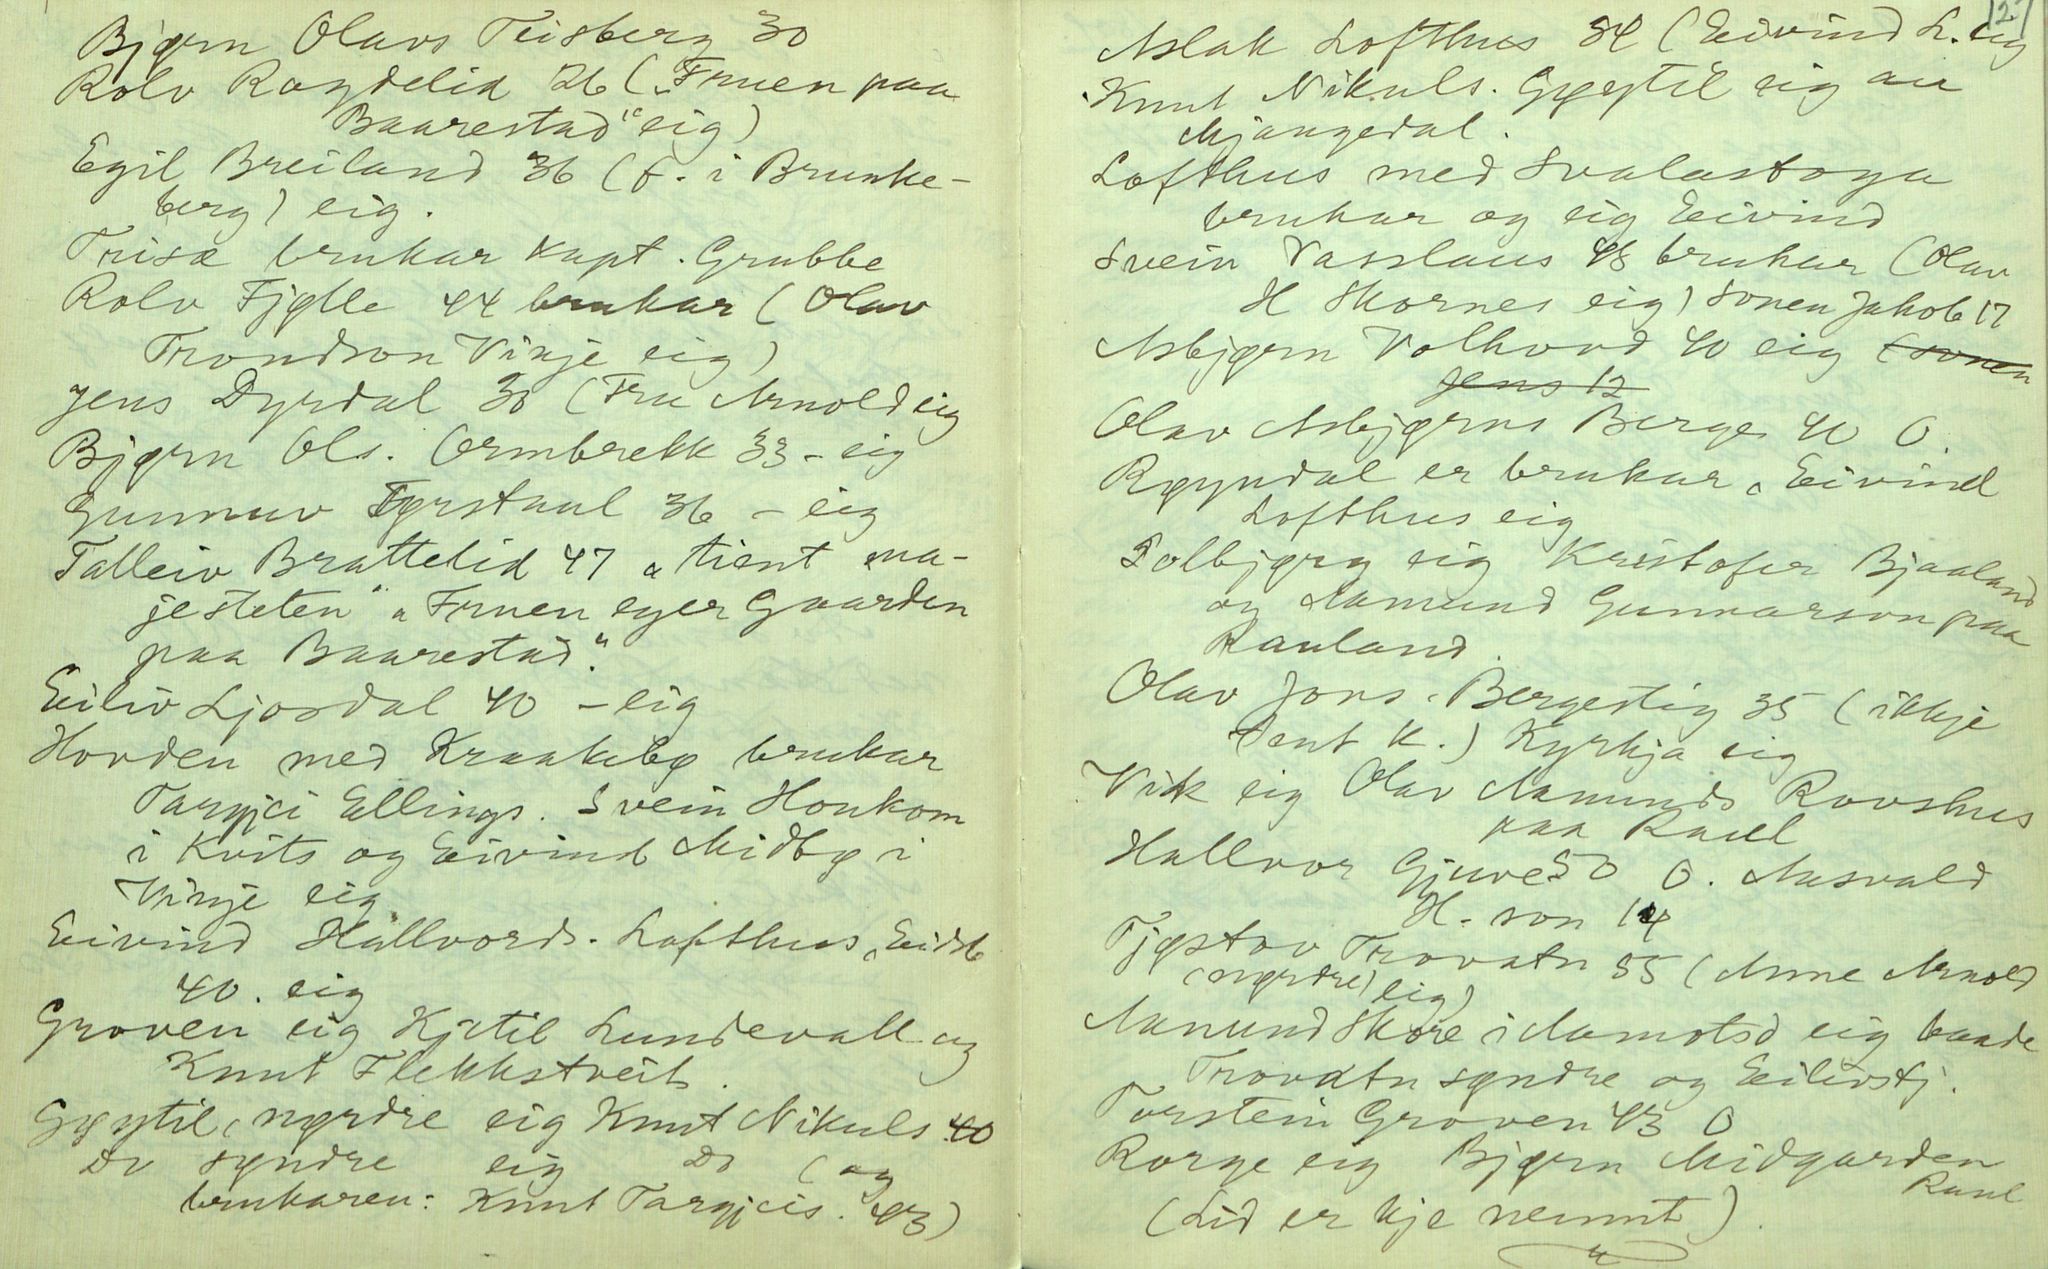 Bjørn Olavs Teisberg 30
Rolv Raaydelid 26 („Fruen paa
Baarestad" eig)
Egil Breiland 36 (f. i Brunke-
berg) eig.
Trisæ brukar Kapt. Grubbe
Rolv Fjølle 44 brukar (Olav
Trondson Vinje eig)
Jens Dyrdal 30 (Fru Arnold eig
Bjørn Ols. Ormbrekk 33 – eig
Gunnuv Førstaul 36 – eig
Talleiv Brattelid 47 „tient ma-
jesteten" „Fruen eyer Gaarden
paa Baarestad."
Eiliv Ljosdal 40 – eig
Hovden med Kraakebø brukar
Targjei Ellings. Svein Honkom
i Kvits og Eivind Midbø i
Vinje eig
Eivind Hallvords. Lofthus, Eidsb
40. eig
Groven eig Kjetil Lundevall og
Knut Flekkstveit.
Gøytil, nørdre eig Knut Nikuls 40
Do syndre eig Do (og
brukaren: Knut Targjeis. 43)
127
Aslak Lofthus 54 (Eivind L. eig
Knut Nikuls. Gøytil eig au
Mjaugedal.
Lofthus med Svalastoga
brukar og eig Eivind
Svein Vasslaus 48 brukar (Olav
H Skornes eig) sonen Jakob 17
Asbjørn Volhovd 40 eig (sonen
Jens 12
Olav Asbjørns Berge 40 O.
Røyndal er brukar, Eivind
Lofthus eig
Solbjørg eig Kristofer Bjaaland
og Aamund Gunnarson paa
Rauland.
Olav Jons. Bergestig 35 (ikkje
tent K.) Kyrkja eig
Vik eig Olav Aamunds Rovshus
paa Raul
Hallvor Gjuve 50 O. Aasvald
H. son 14
Tjøstov Trovatn 55 (Anne Arnold
(nørdre) eig)
Aanund Skøre i Aamotsd eig baade
Trovatn syndre og Eilivstj.
Torstein Groven 43 O
Rorge eig Bjørn Midgarden
Raul
(Lid er kje nemnt).